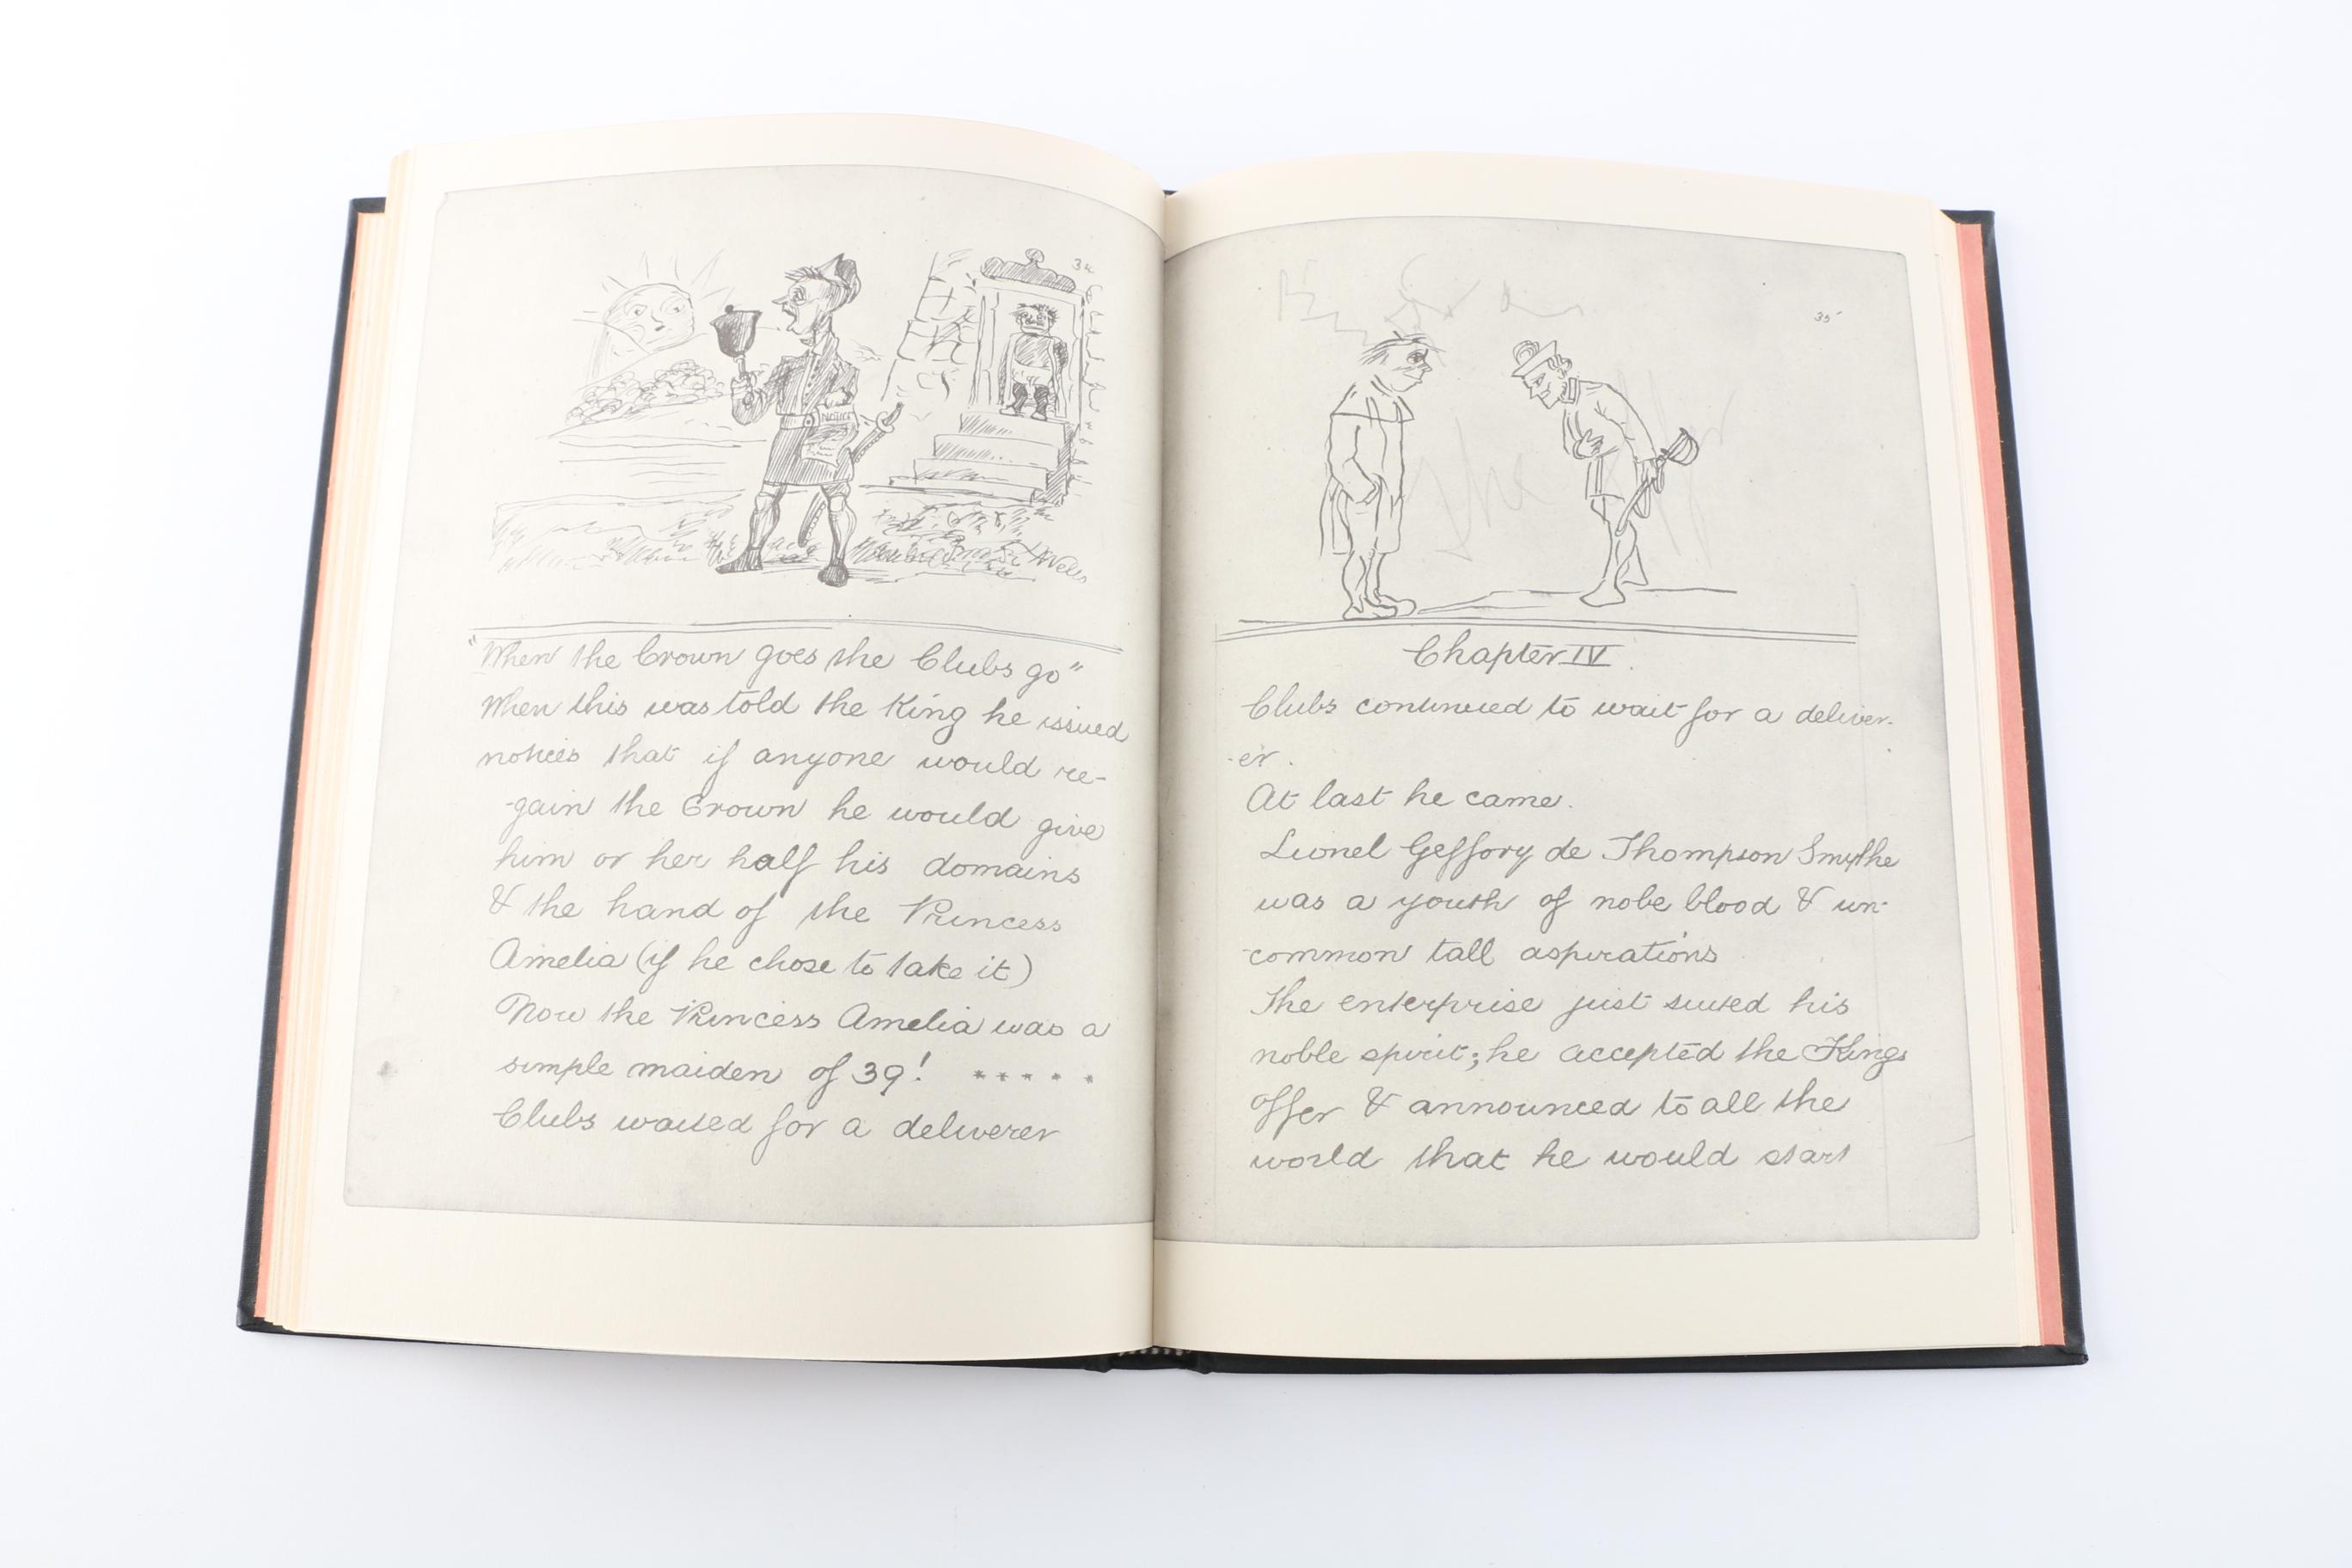 34
NOTICE
"When the Crown goes the Clubs go"
When this was told the King he issued
notices that if anyone would re-
-gain the Crown he would give
him or her half his domains
& the hand of the Princess
Amelia (if he chose to take it)
Now the Princess Amelia was a
simple maiden of 39! * * * * *
Clubs waited for a deliverer
35
the
Chapter IV.
Clubs continued to wait for a deliver-
-er.
At last he came.
Lionel Geffory de Thompson Smythe
was a youth of noble blood & un-
-common tall aspirations
The enterprise just suited his
noble spirit; he accepted the Kings
offer & announced to all the
world that he would start